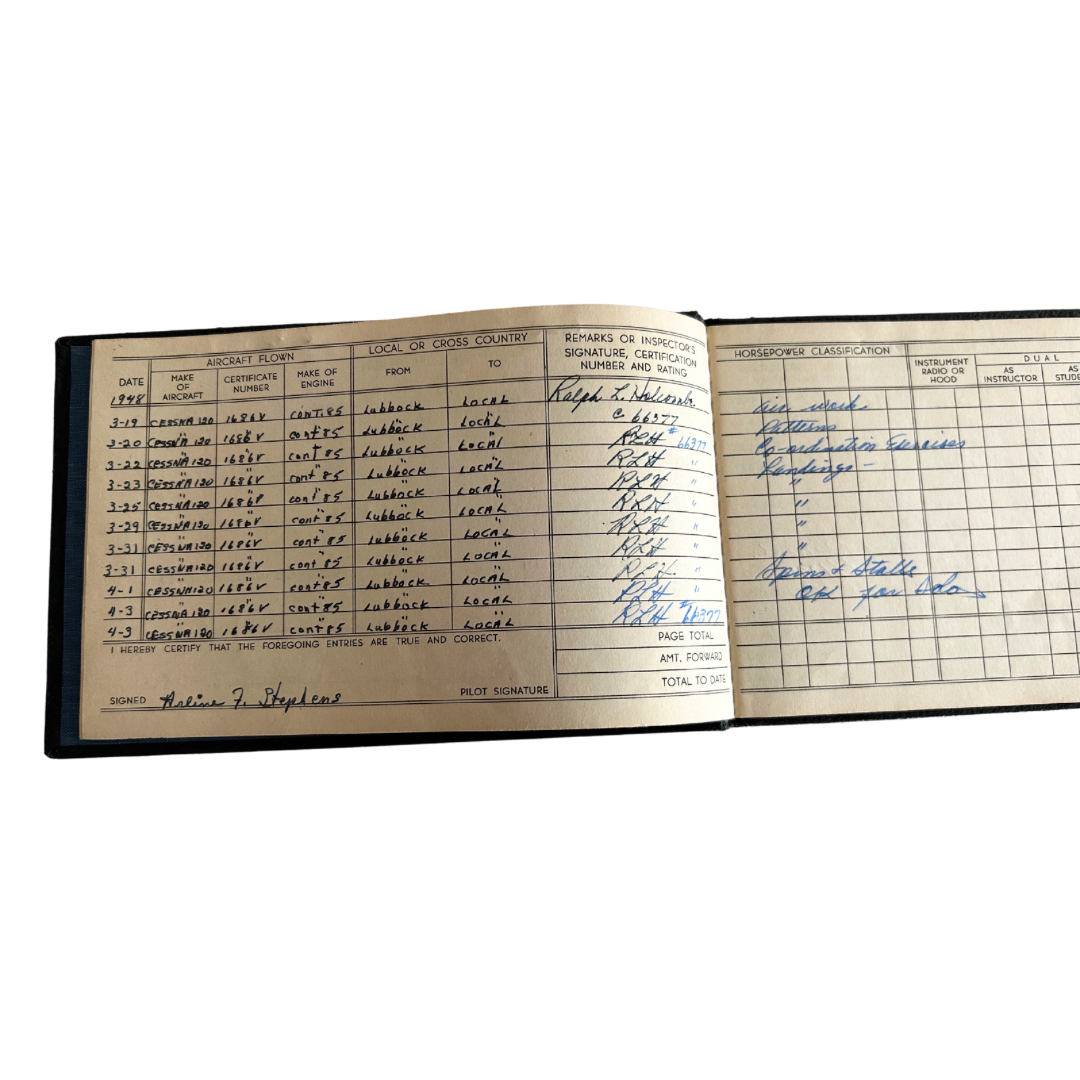 AIRCRAFT FLOWN
LOCAL OR CROSS COUNTRY
REMARKS OR INSPECTOR'S SIGNATURE, CERTIFICATION NUMBER AND RATING
DATE MAKE OF AIRCRAFT CERTIFICATE NUMBER MAKE OF ENGINE FROM TO
1948
3-19 CESSNA 120 1686V CONT. 85 Lubbock LOCAL Ralph L. Holcomb
C 66377
3-20 CESSNA 120 1686V cont 85 Lubbock LOCAL RLH #66377
3-22 CESSNA 120 1686V cont 85 Lubbock LOCAL RLH "
3-23 CESSNA 120 1686V cont 85 Lubbock LOCAL RLH "
3-25 CESSNA 120 1686V cont 85 Lubbock LOCAL RLH "
3-29 CESSNA 120 1686V cont 85 Lubbock LOCAL RLH "
3-31 CESSNA 120 1686V cont 85 Lubbock LOCAL RLH "
3-31 CESSNA 120 1686V cont 85 Lubbock LOCAL RLH "
4-1 CESSNA 120 1686V cont 85 Lubbock LOCAL RLH "
4-3 CESSNA 120 1686V cont 85 Lubbock LOCAL RLH #66377
4-3 CESSNA 120 1686V cont 85 Lubbock LOCAL
I HEREBY CERTIFY THAT THE FOREGOING ENTRIES ARE TRUE AND CORRECT.
PAGE TOTAL
AMT. FORWARD
TOTAL TO DATE
SIGNED Arline F. Stephens PILOT SIGNATURE
HORSEPOWER CLASSIFICATION
INSTRUMENT RADIO OR HOOD
DUAL
AS INSTRUCTOR
AS STUDE
air work
Patterns
Co-ordination Exercises
Landings -
"
"
"
Spins & Stalls
OK for Solo